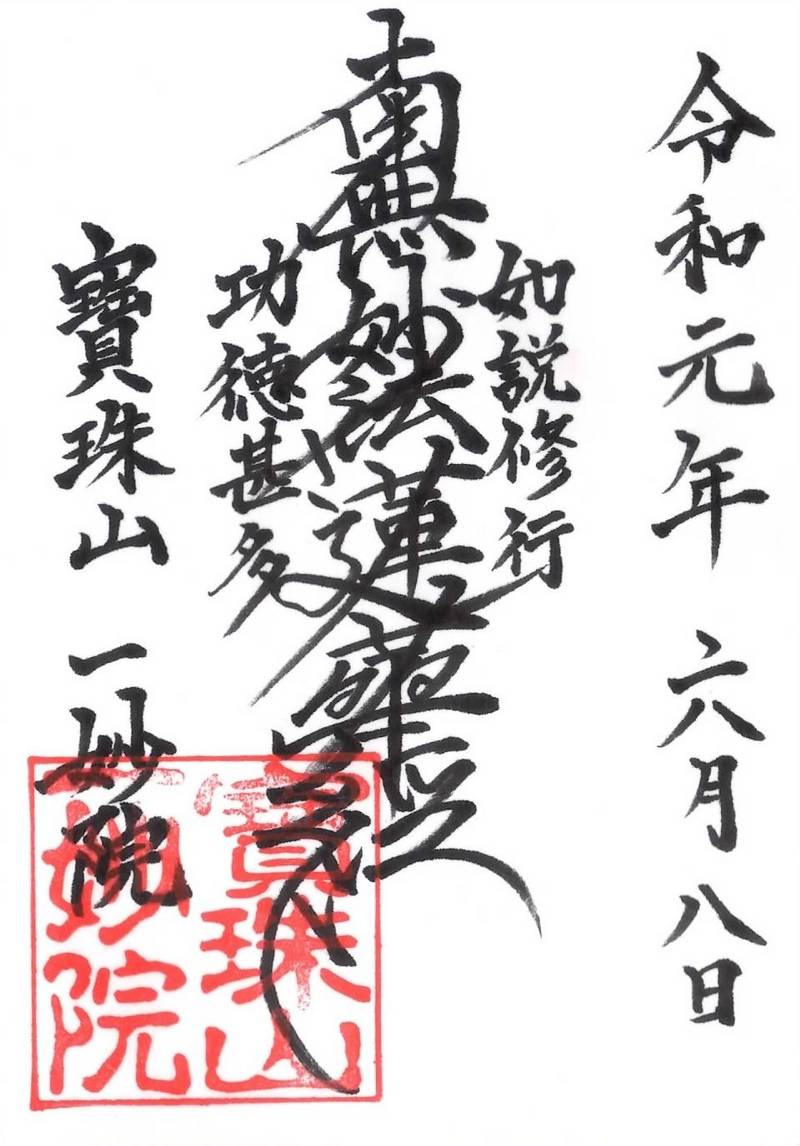 令和元年 六月八日
如説修行
南無妙法蓮華経
功徳甚多
寶珠山 一妙院
寶珠山
一妙院